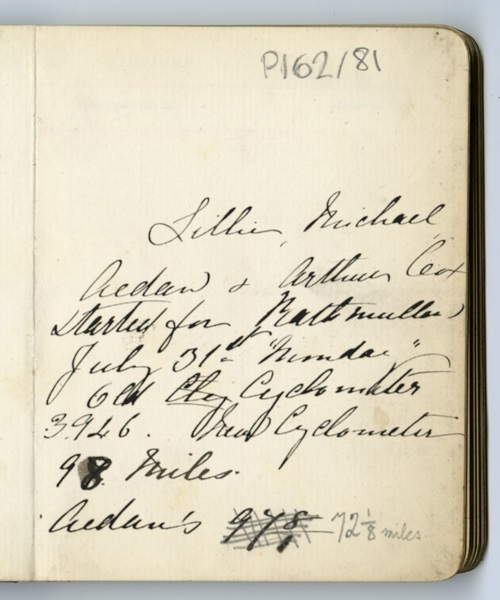 P162/81
Lillie, Michael,
Aedan & Arthur Cox
started for Rathmullan
July 31st "Monday"
Old Cyclometer
3946. New Cyclometer
98 Miles.
Aedan's 978 72 1/8 miles